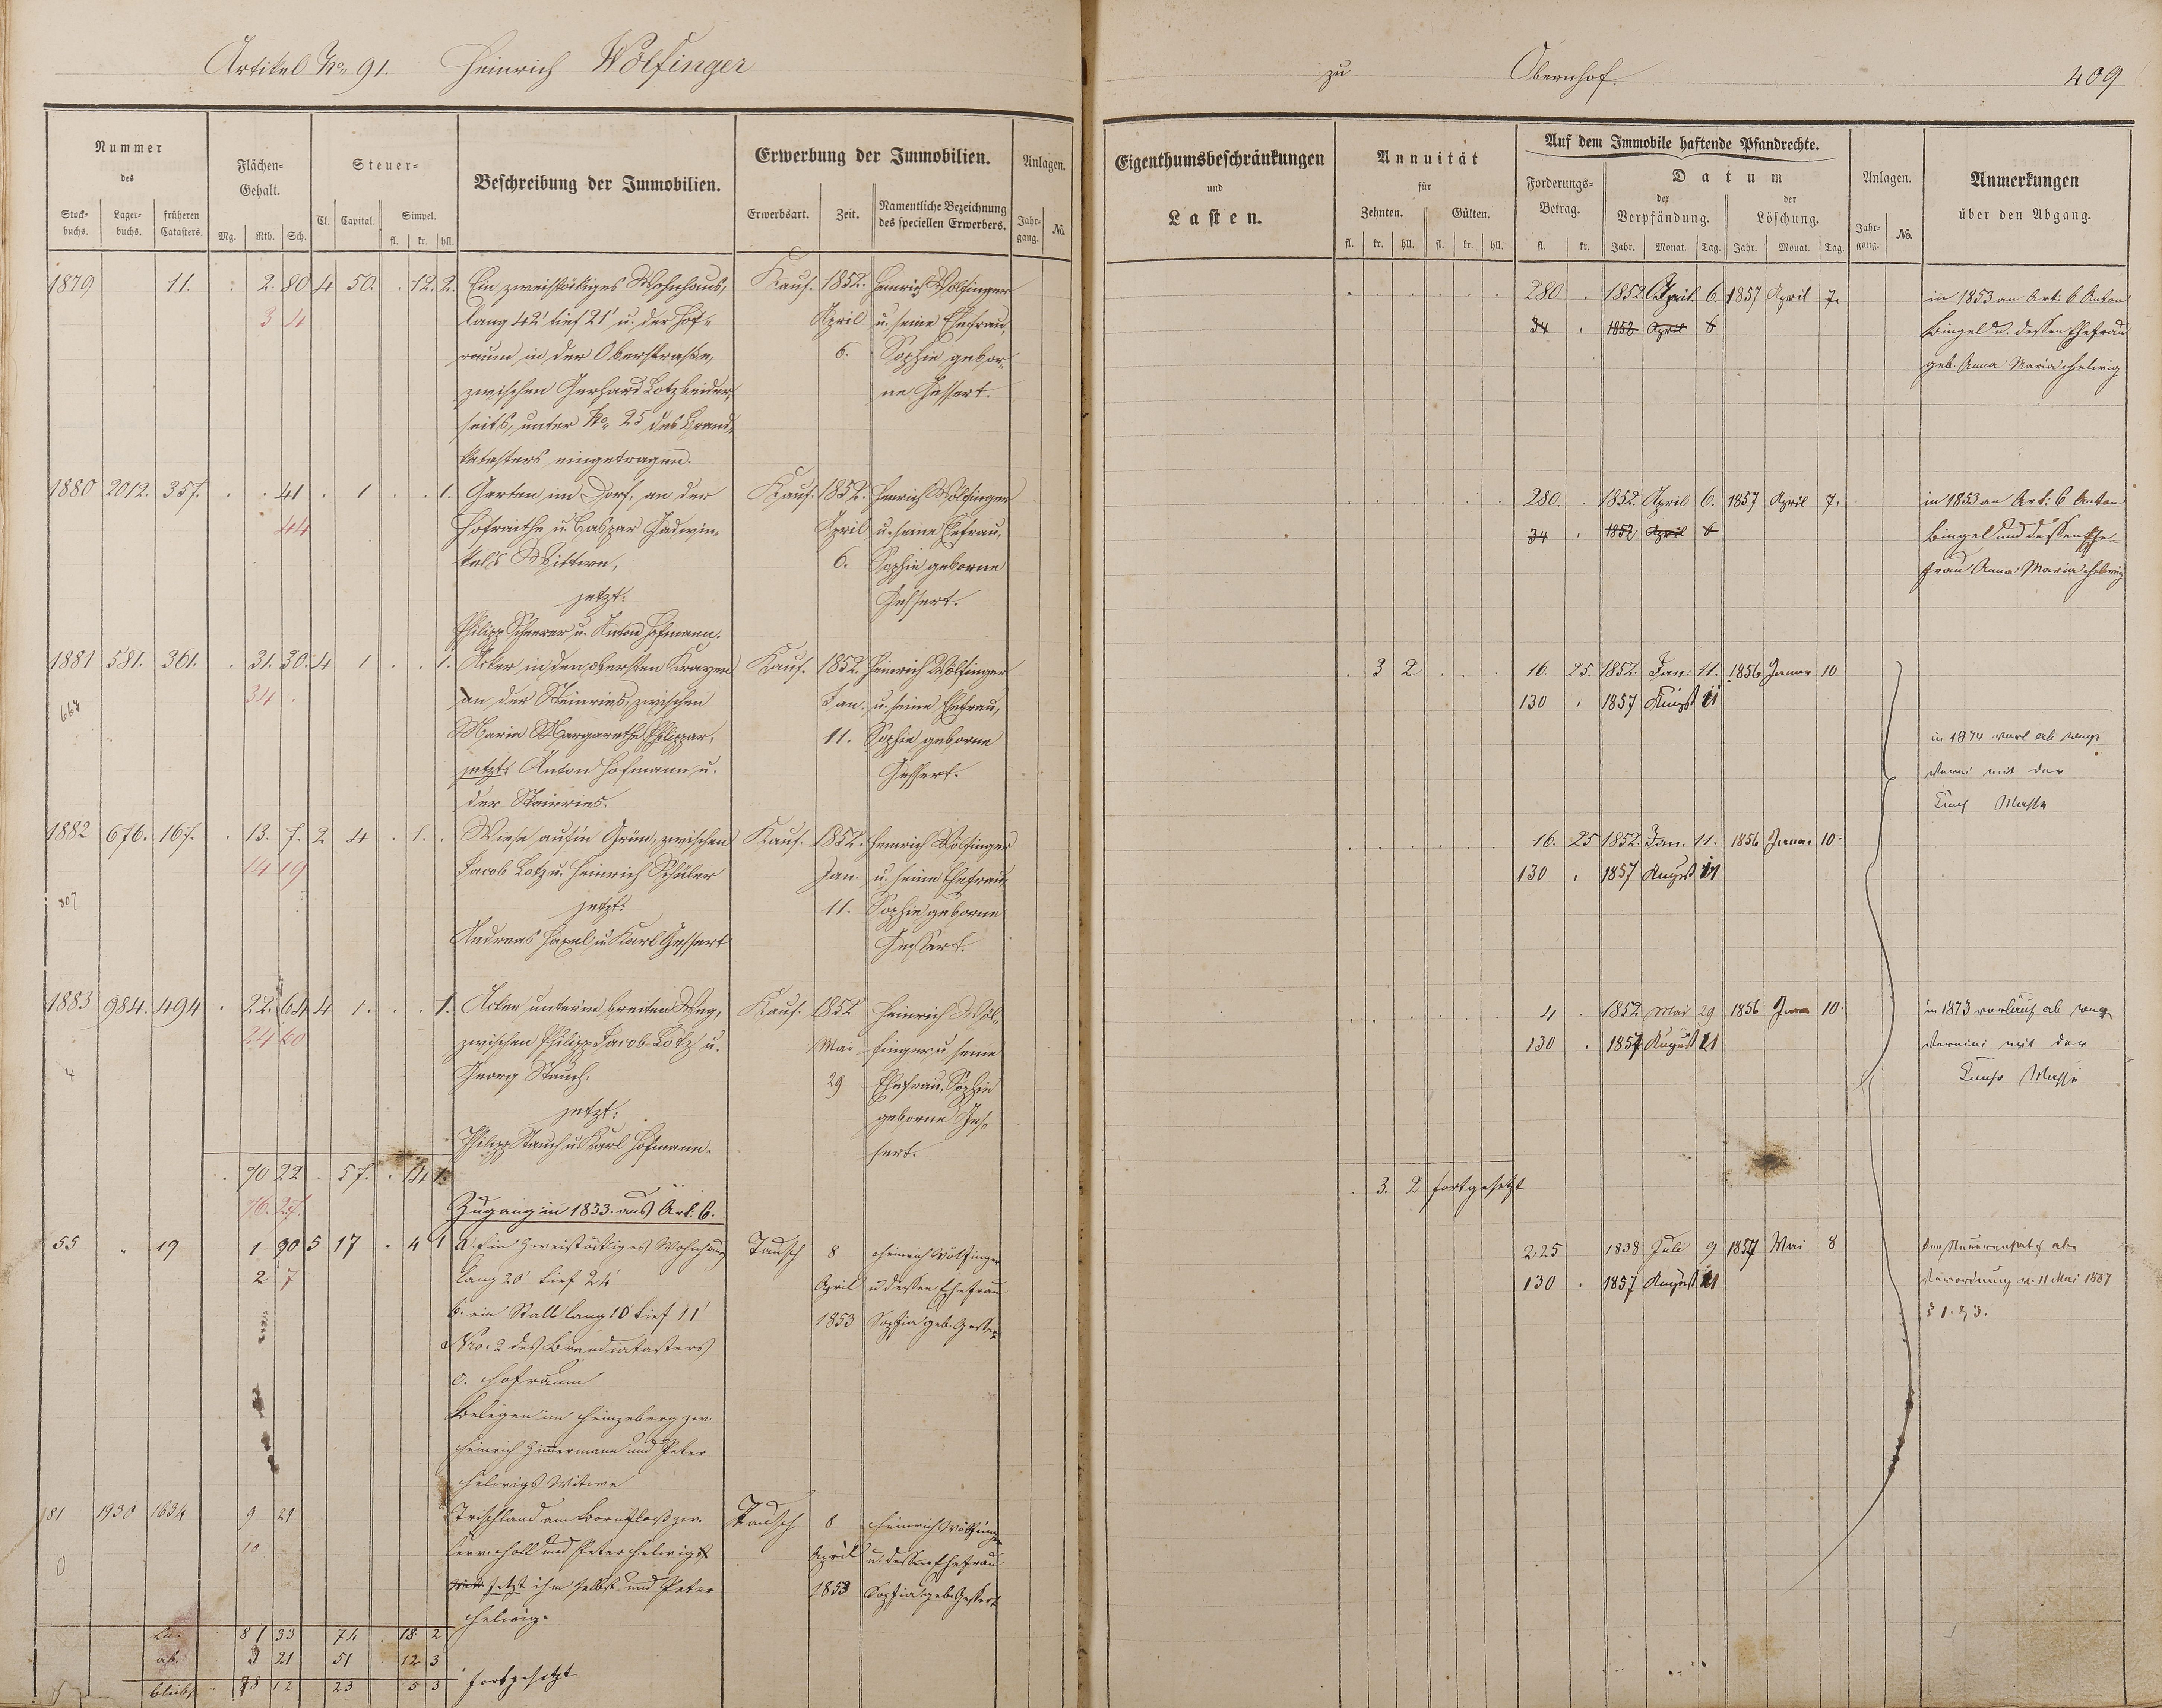 Artikel No. 91. Heinrich Wölfinger
zu Obernhof. 409
Nummer
des
Stock-
buchs.
Lager-
buchs.
früheren
Catasters.
Flächen-
Gehalt.
Mg. Rth. Sch.
Steuer-
Cl. Capital. Simpel.
fl. kr. hll.
Beschreibung der Immobilien.
Erwerbung der Immobilien.
Erwerbsart. Zeit. Namentliche Bezeichnung
des speciellen Erwerbers.
Anlagen.
Jahr-
gang. No.
Eigenthumsbeschränkungen
und
Lasten.
Annuität
für
Zehnten. Gülten.
fl. kr. hll. fl. kr. hll.
Auf dem Immobile haftende Pfandrechte.
Forderungs-
Betrag.
fl. kr.
Datum
der
Verpfändung.
der
Löschung.
Jahr. Monat. Tag. Jahr. Monat. Tag.
Anlagen.
Jahr-
gang. No.
Anmerkungen
über den Abgang.
1879 11. . 2. 80 4 50. . 12. 2. Ein zweistöckiges Wohnhaus, Kauf. 1852. Heinrich Wölfinger 280 . 1852 April. 6. 1857 April 7. in 1853 an Art. 6 Anton
3 4 lang 42' tief 21' u. der Hof- April u. seine Ehefrau, 34 . 1852 April 6 Bingel u. dessen Ehefrau
raum in der Oberstraße, 6. Sophie gebor- geb. Anna Maria Helwig
zwischen Gerhard Lotz beider- ne Gessert.
seits, unter No. 25 des Brand-
katasters eingetragen.
1880 2012. 357. . . 41 . 1 . . 1. Garten im Dorf, an der Kauf. 1852. Heinrich Wölfinger 280. . 1852 April 6. 1857 April 7. in 1853 an Art: 6 Anton
44 Hofraithe u. Caspar April u. seine Ehefrau, 34 . 1852 April 6 Bingel und dessen Ehe-
Wittwe, 6. Sophie geborne frau Anna Maria Helwig
jetzt: Gessert.
Philipp Scheerer u. Anton Hofmann.
1881 581. 361. . 31. 30. 4 1 . . 1. Acker in den obersten Kauf. 1852. Heinrich Wölfinger . 3 2 16. 25. 1852. Jan: 11. 1856 Januar 10
34 . an der Steinries, zwischen Jan. u. seine Ehefrau, 130 . 1857 August 11
667 Maria Margarethe Philippar, 11. Sophie geborne in 1874
jetzt: Anton Hofmann u. Gessert. mit der
der Steinries. Masse
1882 676. 167. . 13. 7. 2 4 . 1. . Wiese auf'm Grün, zwischen Kauf. 1852. Heinrich Wölfinger 16. 25 1852. Jan. 11. 1856 Januar 10.
14 19 Jacob Lotz u. Heinrich Schüler Jan. u. seine Ehefrau 130 . 1857 August 11
307 jetzt: 11. Sophie geborne
Andreas u. Karl Gessert Gessert.
1883 984. 494 . 22. 64 4 1. . . 1. Acker unterm breiten Weg, Kauf. 1852 Heinrich Wöl- 4 . 1852 Mai 29 1856 Janu 10. in 1873 ab
24 60 zwischen Philipp Jacob Lotz u. Mai finger u. seine 130 . 1857 August 11 mit der
4 Georg Stauch. 29 Ehefrau, Sophie Masse
jetzt: geborne Ges-
Philipp Stauch u. Karl Hofmann. sert.
. 70 22 . 57. . 14 1. . 3. 2 fortgesetzt
76. 27.
Zugang in 1853. aus Art. 6.
55 " 19 1 90 5 17 . 4 1 a. Ein zweistöckiges Wohnhaus Tausch 8 Heinrich Wölfinger 225 1838 Juli 9 1857 Mai 8
2 7 lang 20' tief 24' April u dessen Ehefrau 130 . 1857 August 11 Verordnung v. 11 Mai 1857
b. ein Stall lang 10' tief 11' 1853 Sophia geb. Gessert § 1. & 3.
Nro. 2 des Brandkatasters
c. Hofraum
Belegen im Heinzeberg zw.
Heinrich Zimmermann und Peter
Helwigs Witwe
181 1930 1634 9 21 Trischland am zw. Tausch 8 Heinrich Wölfinger
10 und Peter Helwigs April u. dessen Ehefrau
0 jetzt ihm selbst und Peter 1853 Sophia geb. Gessert
Helwig.
Su. 81 33 74 18 2
ab. 3 21 51 12 3
bleibt 78 12 23 5 3 fortgesetzt